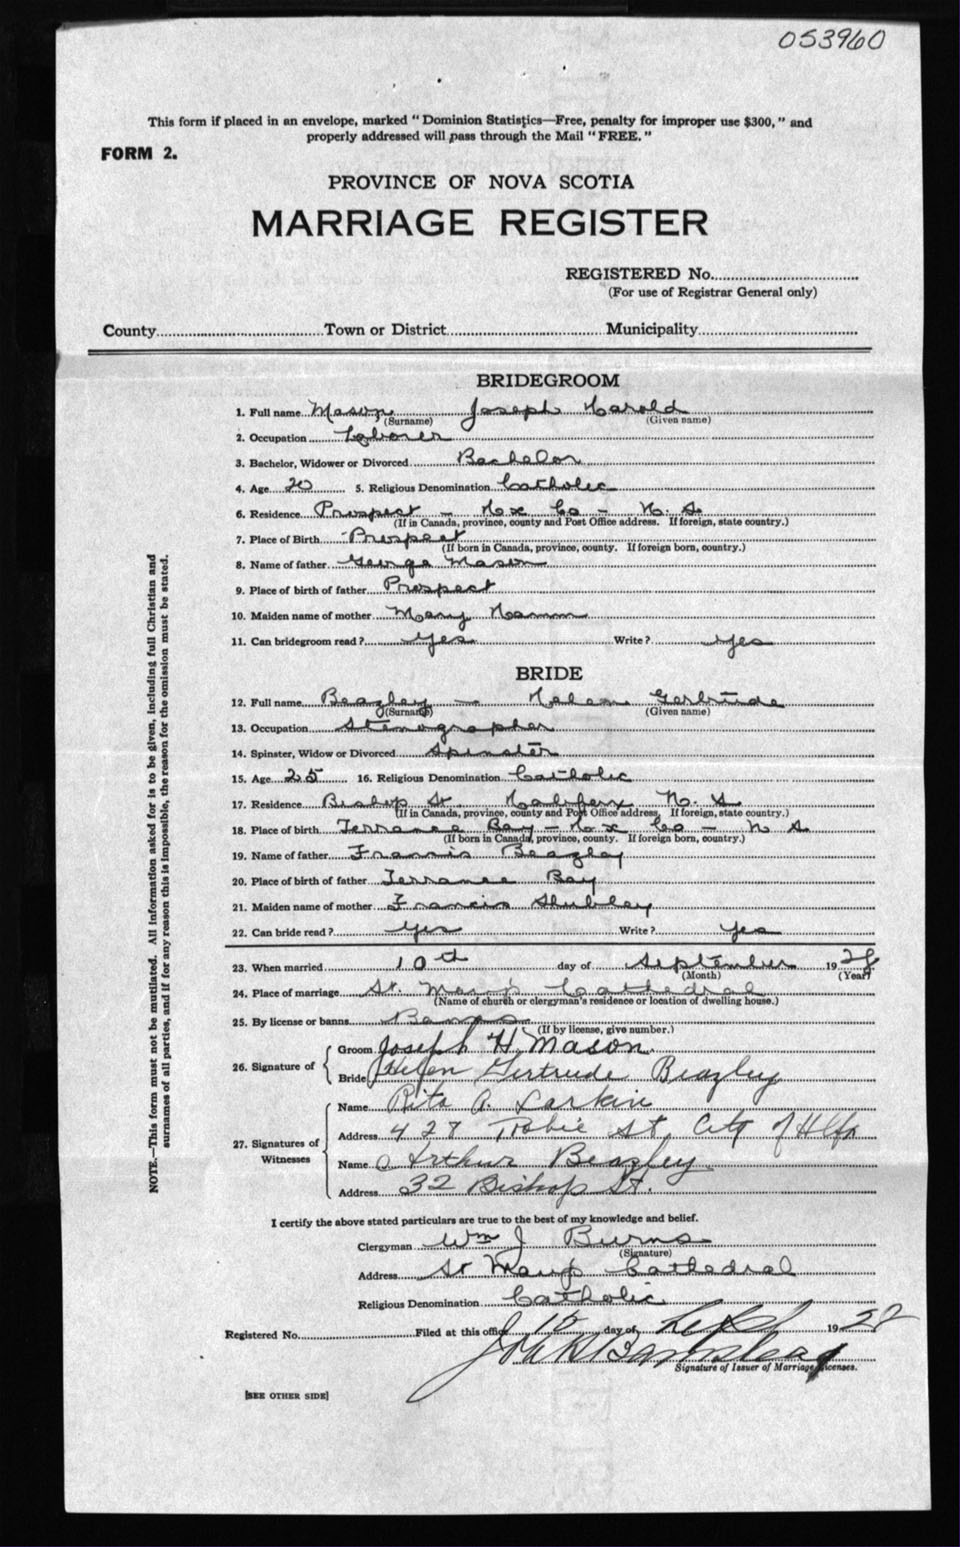 053960
This form if placed in an envelope, marked "Dominion Statistics—Free, penalty for improper use $300," and
properly addressed will pass through the Mail "FREE."
FORM 2.
PROVINCE OF NOVA SCOTIA
MARRIAGE REGISTER
REGISTERED No.
(For use of Registrar General only)
County Town or District Municipality
BRIDEGROOM
1. Full name Mason Joseph Harold
(Surname) (Given name)
2. Occupation Laborer
3. Bachelor, Widower or Divorced Bachelor
4. Age 20 5. Religious Denomination Catholic
6. Residence Prospect - Hx Co - N. S.
(If in Canada, province, county and Post Office address. If foreign, state country.)
7. Place of Birth Prospect
(If born in Canada, province, county. If foreign born, country.)
8. Name of father George Mason
9. Place of birth of father Prospect
10. Maiden name of mother Mary Hamm
11. Can bridegroom read? Yes Write? Yes
BRIDE
12. Full name Beazley - Helen Gertrude
(Surname) (Given name)
13. Occupation Stenographer
14. Spinster, Widow or Divorced Spinster
15. Age 25 16. Religious Denomination Catholic
17. Residence Bishop St. Halifax N. S.
(If in Canada, province, county and Post Office address. If foreign, state country.)
18. Place of birth Terrance Bay - Hx Co - N S
(If born in Canada, province, county. If foreign born, country.)
19. Name of father Francis Beazley
20. Place of birth of father Terrance Bay
21. Maiden name of mother Francis
22. Can bride read? Yes Write? Yes
23. When married 10th day of September 1928
(Month) (Year)
24. Place of marriage St. Mary's Cathedral
(Name of church or clergyman's residence or location of dwelling house.)
25. By license or banns Banns
(If by license, give number.)
26. Signature of
Groom Joseph H. Mason.
Bride Helen Gertrude Beazley
27. Signatures of Witnesses
Name Rita A. Larkin
Address 427 Robie St. City of Hlfx
Name Arthur Beazley
Address 32 Bishop St.
I certify the above stated particulars are true to the best of my knowledge and belief.
Clergyman Wm J Burns
(Signature)
Address St Mary's Cathedral
Religious Denomination Catholic
Registered No. Filed at this office 15 day of Sept 1928
Signature of Issuer of Marriage Licenses.
[SEE OTHER SIDE]
NOTE.—This form must not be mutilated. All information asked for is to be given, including full Christian and
surnames of all parties, and if for any reason this is impossible, the reason for the omission must be stated.